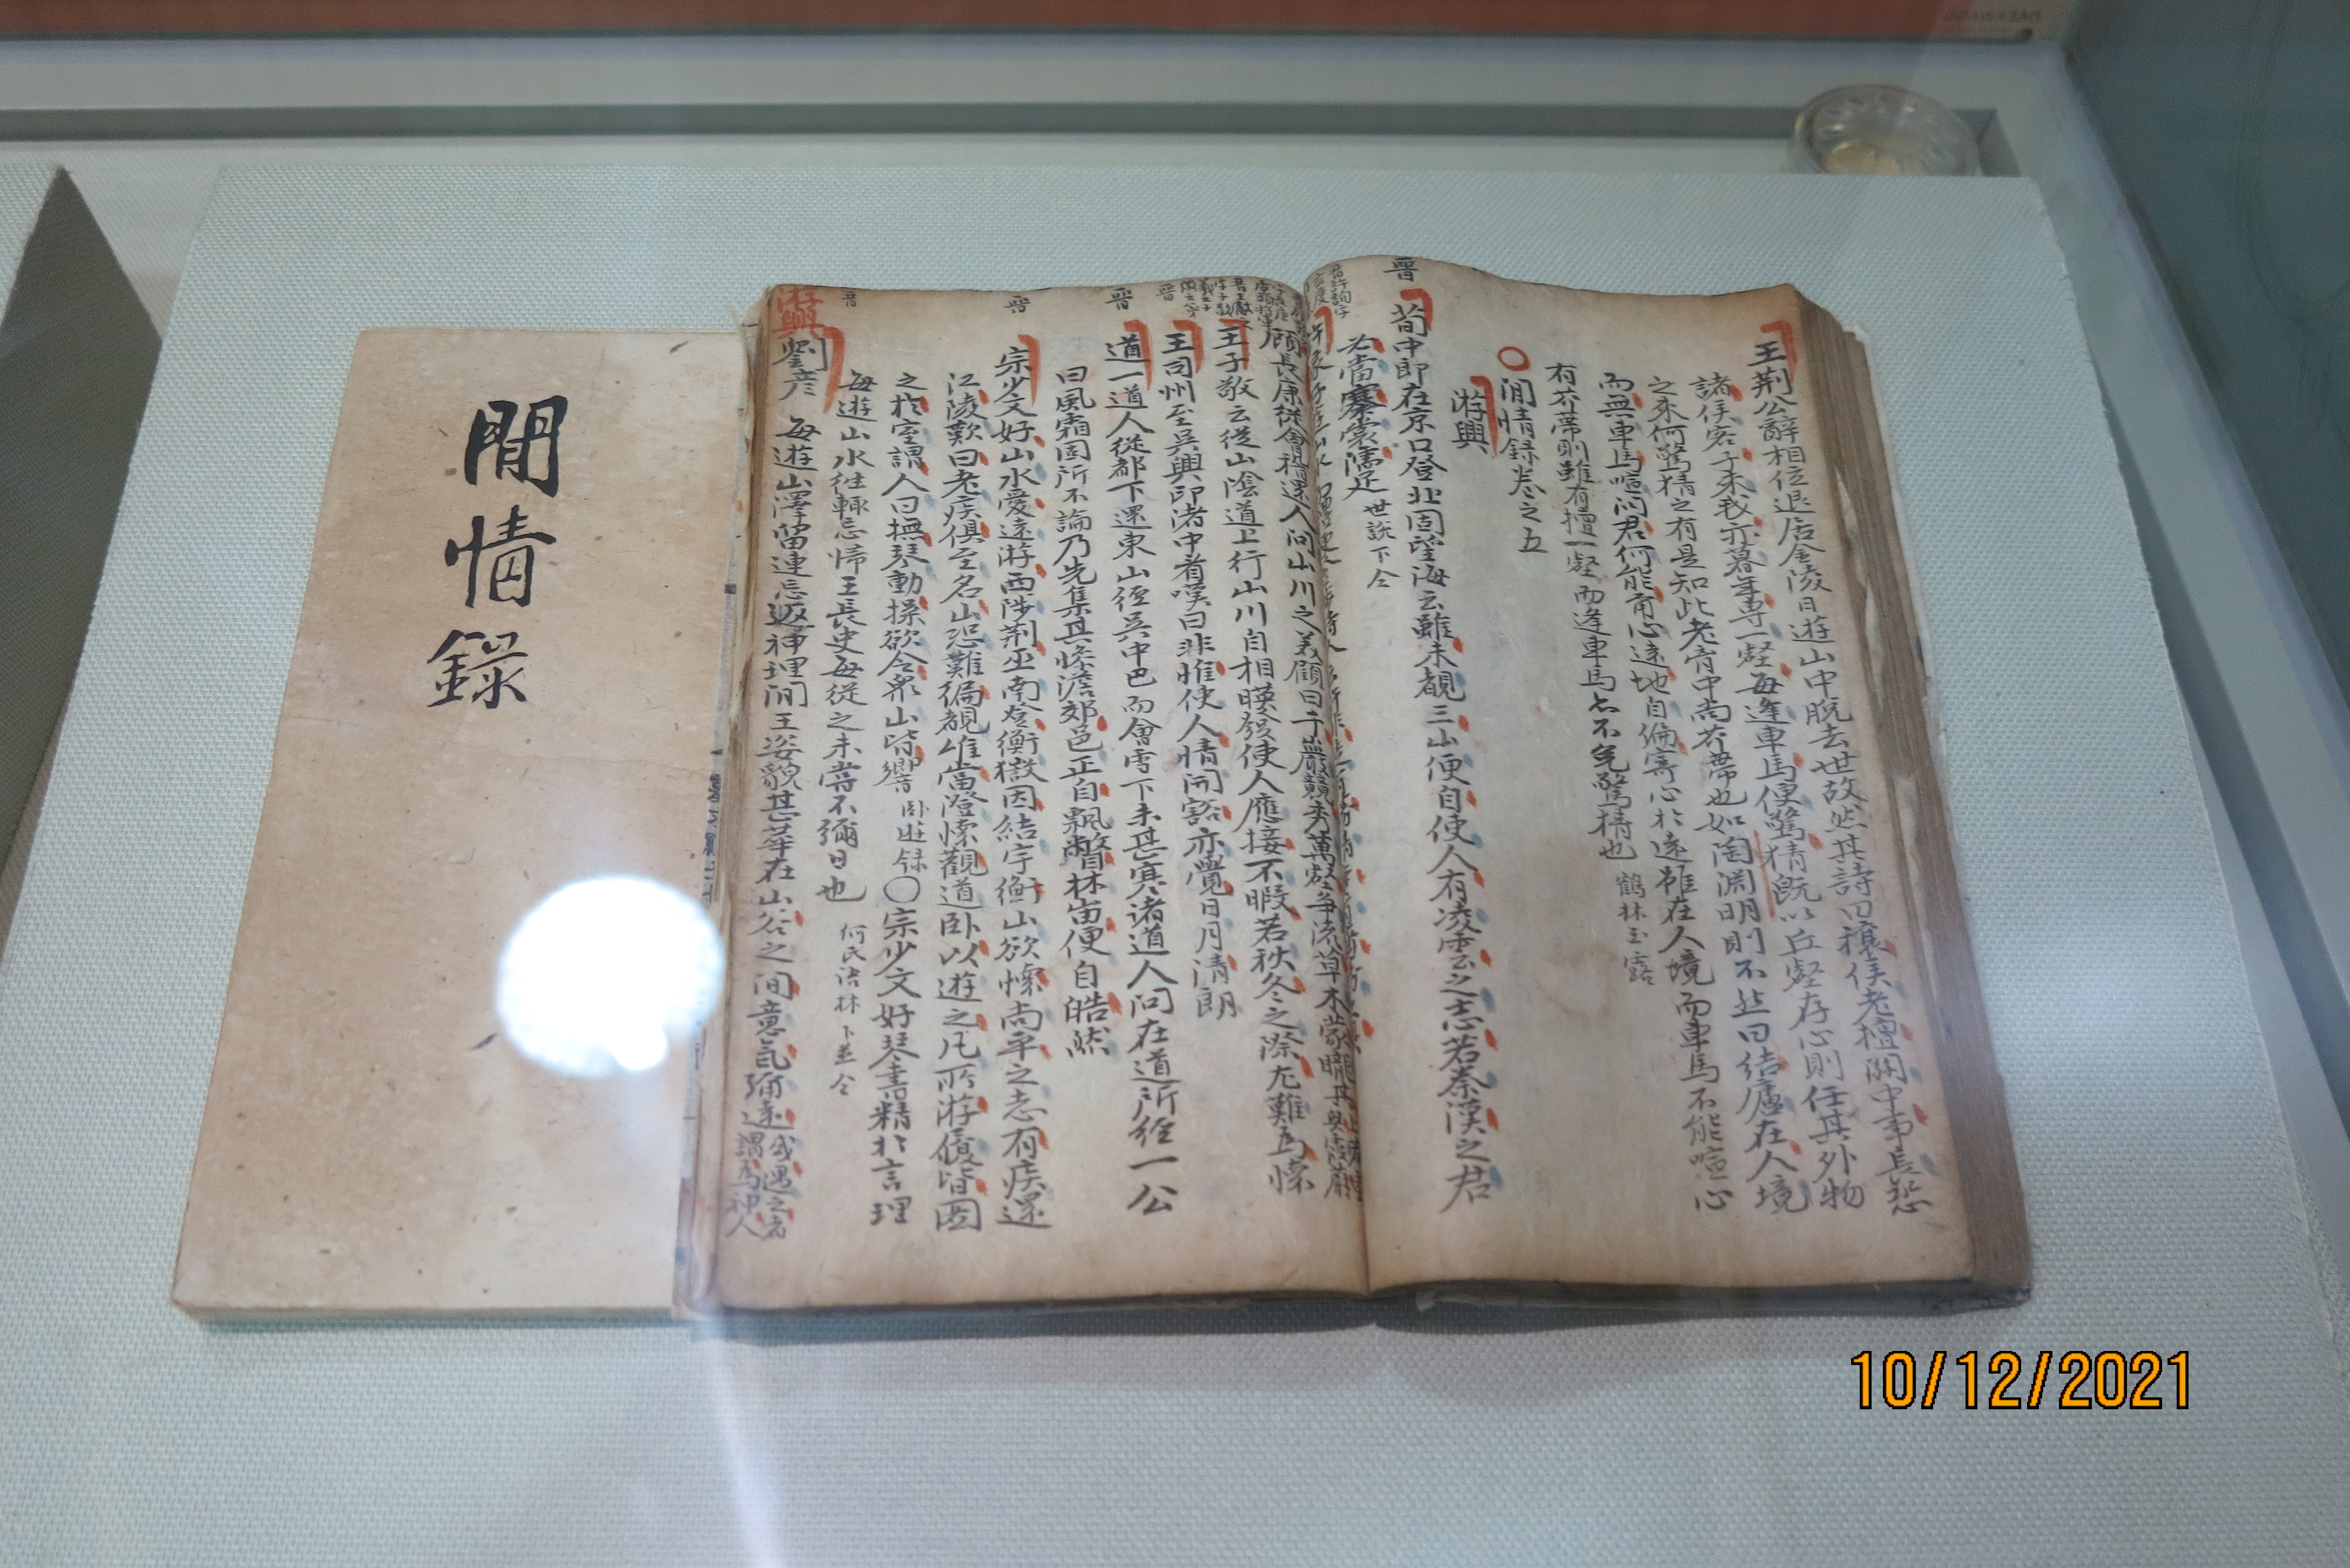 王荆公辭相位退居金陵日遊山中脫去世故然其詩曰穰侯老擅關中事長恐
諸侯客子來我亦暮年專一壑每逢車馬便驚猜旣以丘壑存心則任其外物
之來何驚猜之有是知此老胷中尚芥蔕也如陶淵明則不然曰結廬在人境
而無車馬喧問君何能爾心遠地自偏寄心於遠雖在人境而車馬不能喧心
有芥蔕則雖有擅一壑而逢車馬亦不免驚猜也 鶴林玉露
○閒情録卷之五
游興
晋
荀中郎在京口登北固望海云雖未覩三山便自使人有凌雲之志若秦漢之君
必當褰裳濡足 世說下仝
顧長康從會稽還人问山川之美顧曰千巖競秀萬壑爭流草木蒙
王子敬云從山陰道上行山川自相暎發使人應接不暇若秋冬之際尤難爲懷
晋
王司州至吳興印渚中看嘆曰非惟使人情開豁亦覺日月清朗
晋
道一道人從都下還東山經吳中已而會雪下未甚寒諸道人问在道所經一公
曰風霜固所不論乃先集其慘澹郊邑正自飄瞥林岫便自皓然
晋
宗少文好山水愛遠游西陟荆巫南登衡嶽因結宇衡山欲懷尚平之志有疾還
江陵歎曰老疾俱至名山恐難徧覩唯當澄懷觀道卧以遊之凡所游履皆圖
之於室謂人曰撫琴動操欲令衆山皆響 卧遊録 ○宗少文好琴書精於言理
每遊山水往輒忘帰王長史每從之未嘗不彌日也 何氏語林下並仝
游興
劉彦 每遊山澤留連忘返神理閒王姿貌甚華在山谷之间意氣彌遠或遇之者謂爲神人
閒情錄
10/12/2021